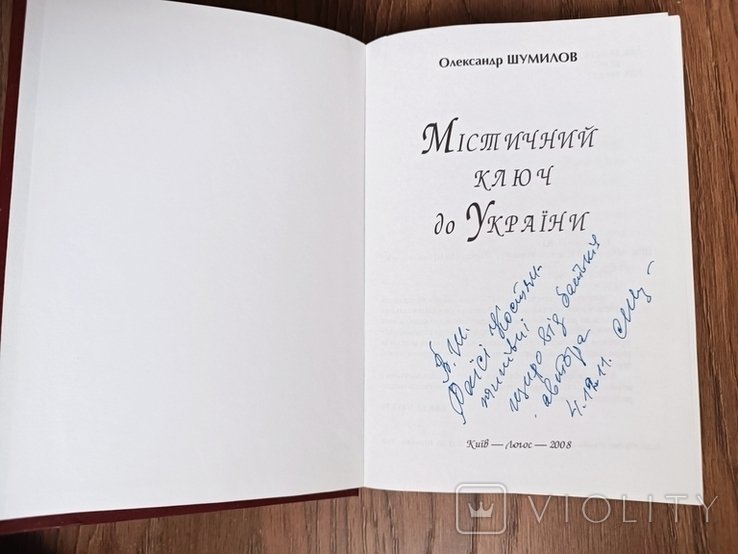 Олександр ШУМИЛОВ
МІСТИЧНИЙ
КЛЮЧ
до УКРАЇНИ
В. Ш.
Раїсі Костян-
тинівні
щиро від батьків
автора
4.12.11.
Київ — Логос — 2008
VIOLITY